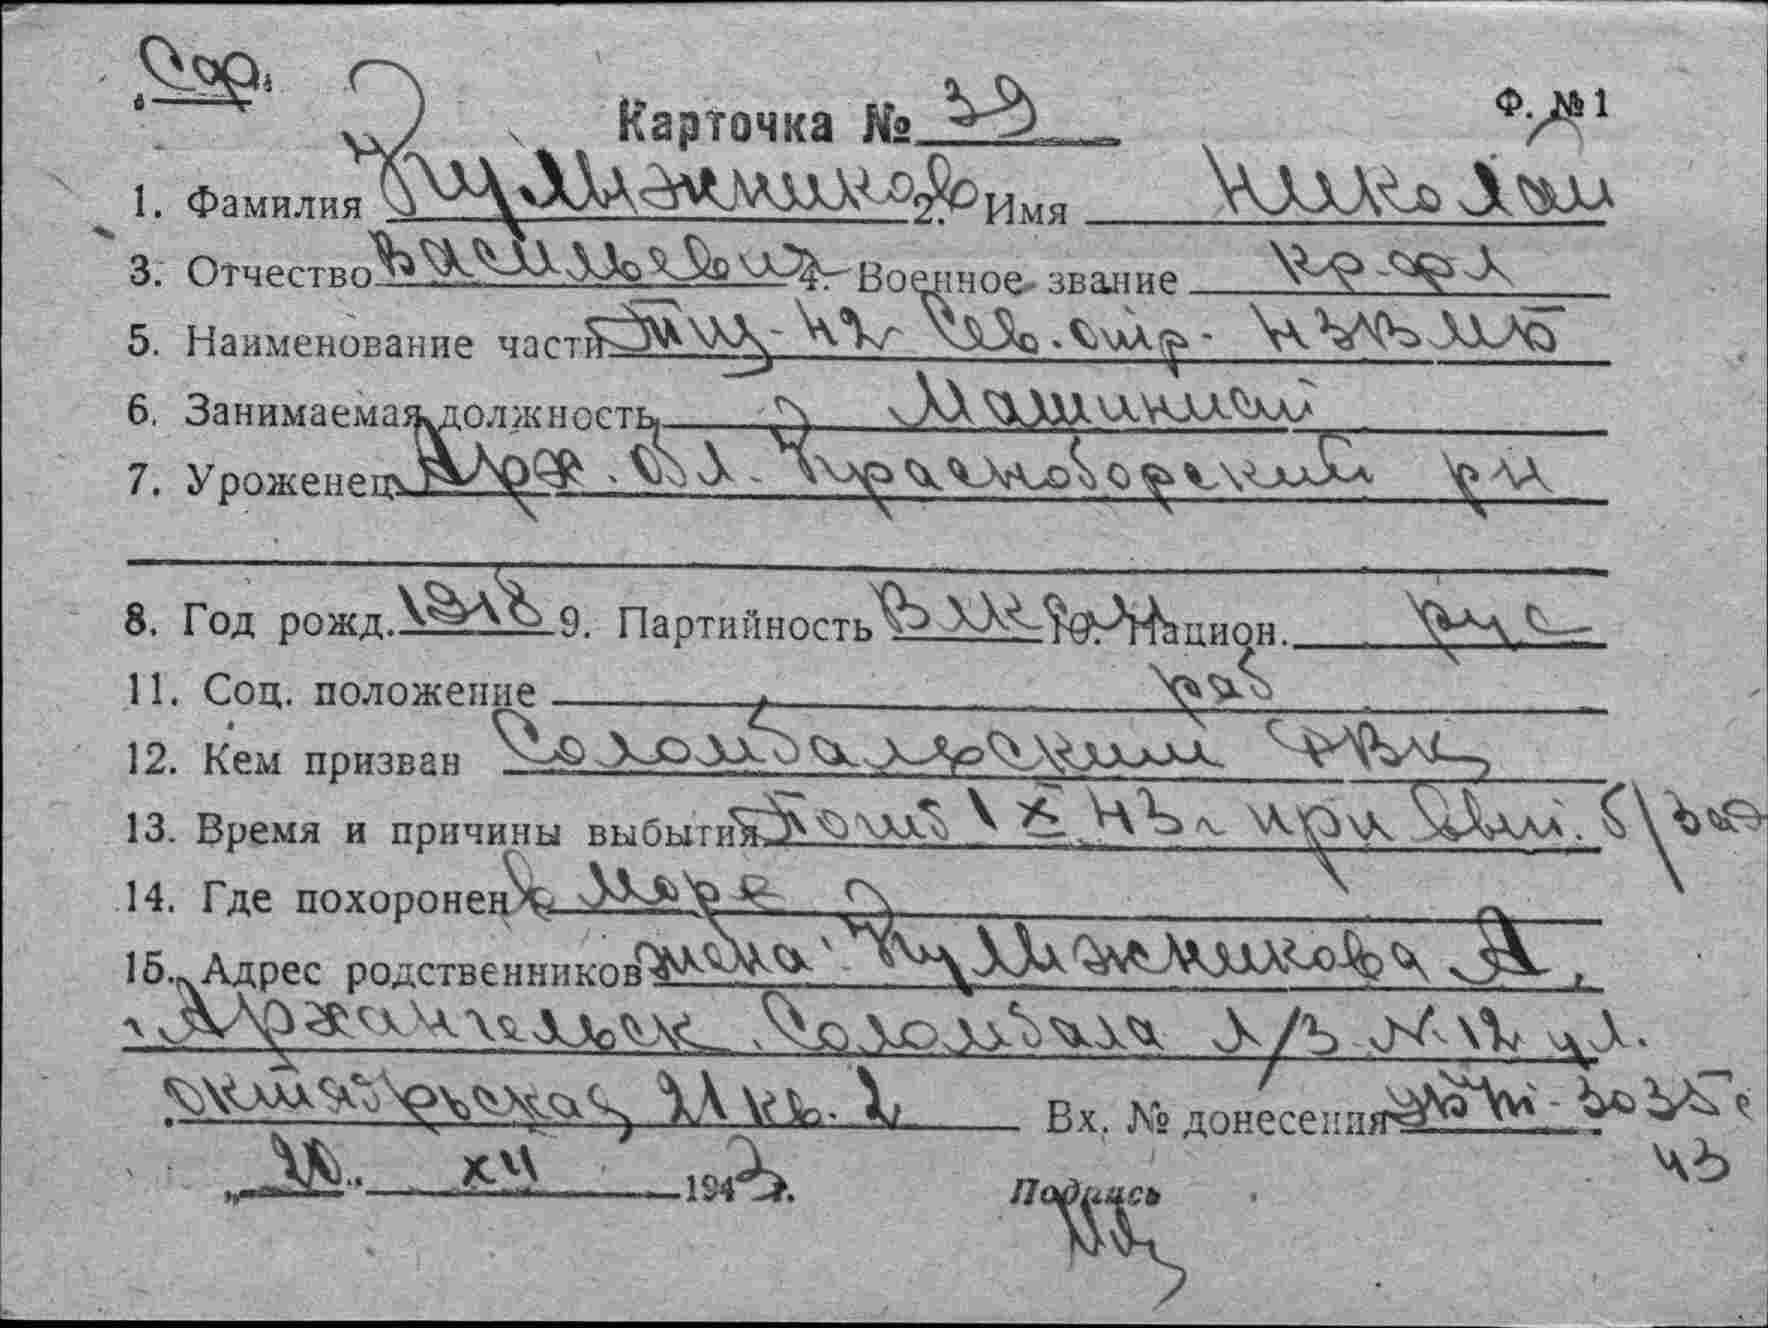 Сар.
Карточка № 39 Ф. №1
1. Фамилия Кулижников 2. Имя Николай
3. Отчество Васильевич 4. Военное звание кр-фл
5. Наименование части Сев.
6. Занимаемая должность Машинист
7. Уроженец Арх. обл. Красноборский рн
8. Год рожд. 1918 9. Партийность ВЛКСМ 10. Национ. рус
11. Соц. положение раб
12. Кем призван Соломбальским РВК
13. Время и причины выбытия Погиб 1 X 43 г при
14. Где похоронен В море
15. Адрес родственников жена Кулижникова А.
г. Архангельск Соломбала л/з № 12 ул.
Октябрьская 21 кв. 2 Вх. № донесения
43
XII 1943 г.
Подпись